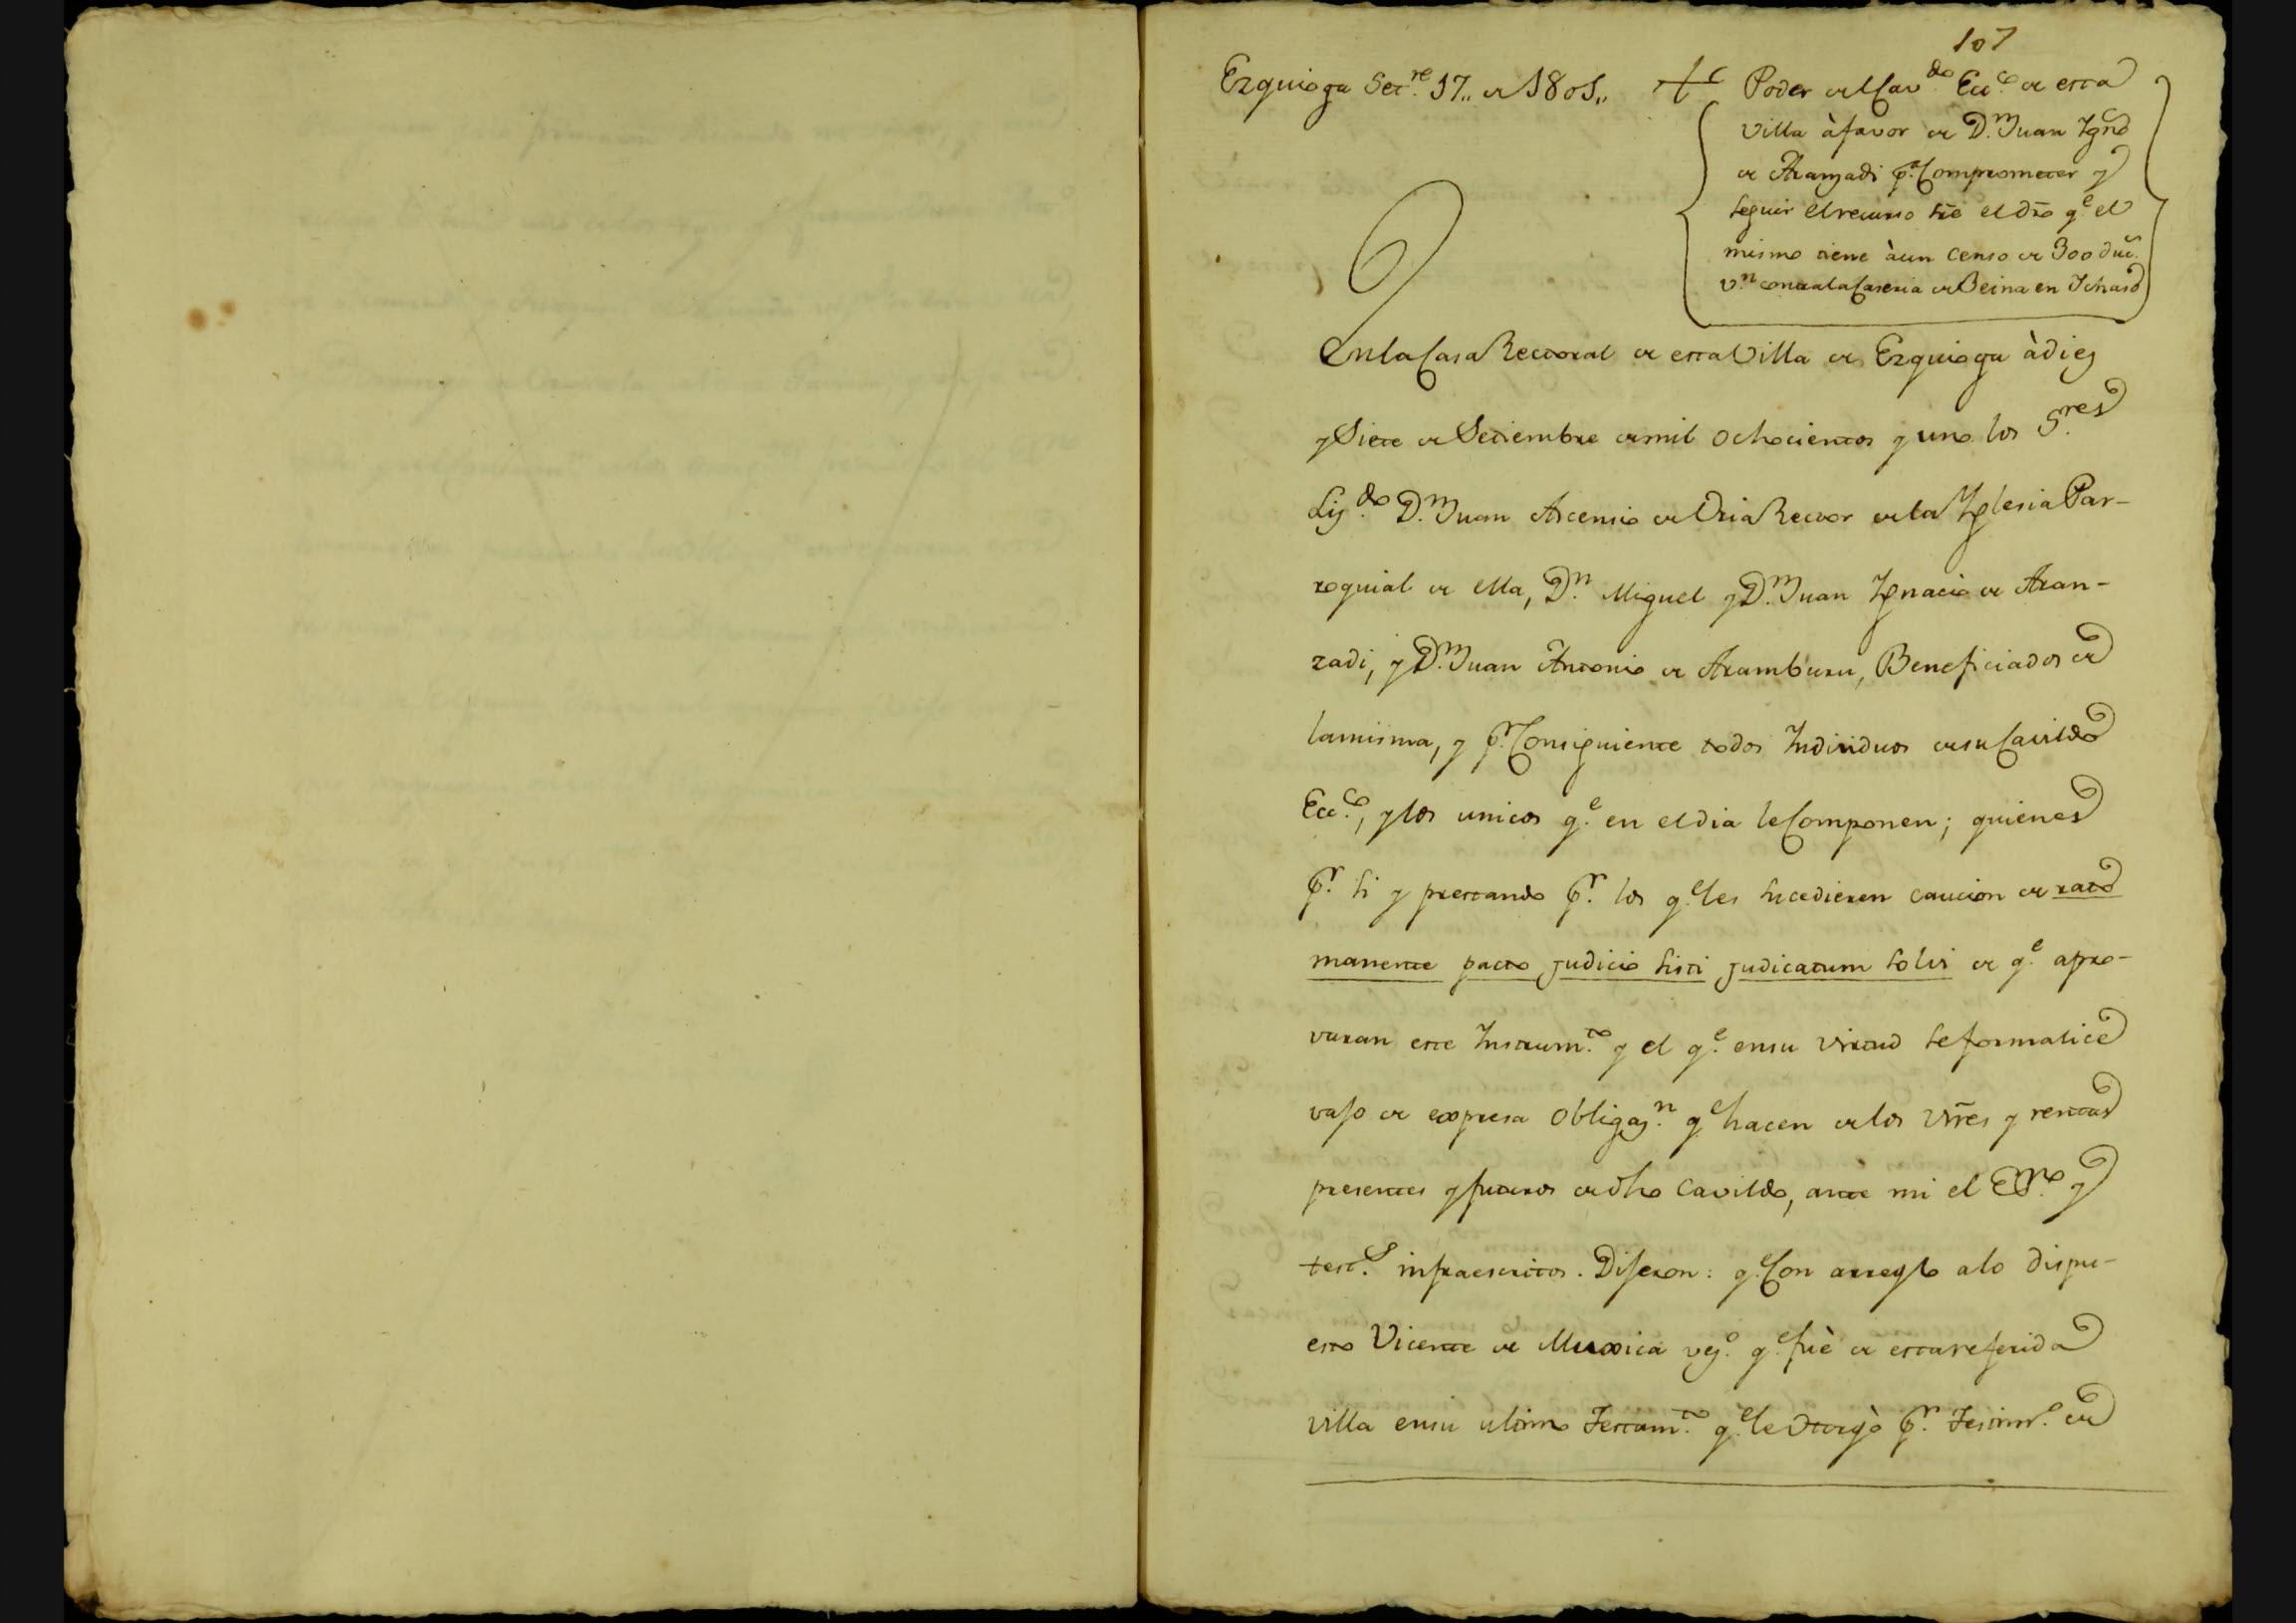 107
Ezquioga Set.re 17,, de 1801,,
Poder del Cav.do Ecc.co de esta
villa à favor de D.n Juan Ygnō
de Aranzadi p.a Comprometer y
seguir el recurso srē el dro q.e el
mismo tiene à un Censo de 300 duc.s
v.n contra la Caseria de Beina en Ichaso
En la Casa Rectoral de esta Villa de Ezquioga à diez
y Siete de Setiembre de mil ochocientos y uno los S.res
Liz.do D.n Juan Ascensio de Uria Rector de la Yglesia Par-
roquial de ella, D.n Miguel y D.n Juan Ygnacio de Aran-
zadi, y D.n Juan Antonio de Aramburu, Beneficiados de
la misma, y p.r Consiguiente todos Individuos de su Cavildo
Ecc.co, y los unicos q.e en el dia le Componen; quienes
p.r si y prestando p.r los q.e les sucedieren caucion de rato
manente pacto judicio sisti judicatum solvi de q.e apro-
varan este Instrum.to y el q.e en su virtud se formalice
vajo de expresa obligaz.n q.e hacen de los vrēs y rentas
presentes y futuros de dho Cavildo, ante mi el Es.no y
test.s infraescritos. Dijeron: q.e Con arreglo a lo dispu-
esto Vicente de Muxica vez.o q.e fuè de esta referida
villa en su ultimo Testam.to q.e le otorgò p.r Testim.o de